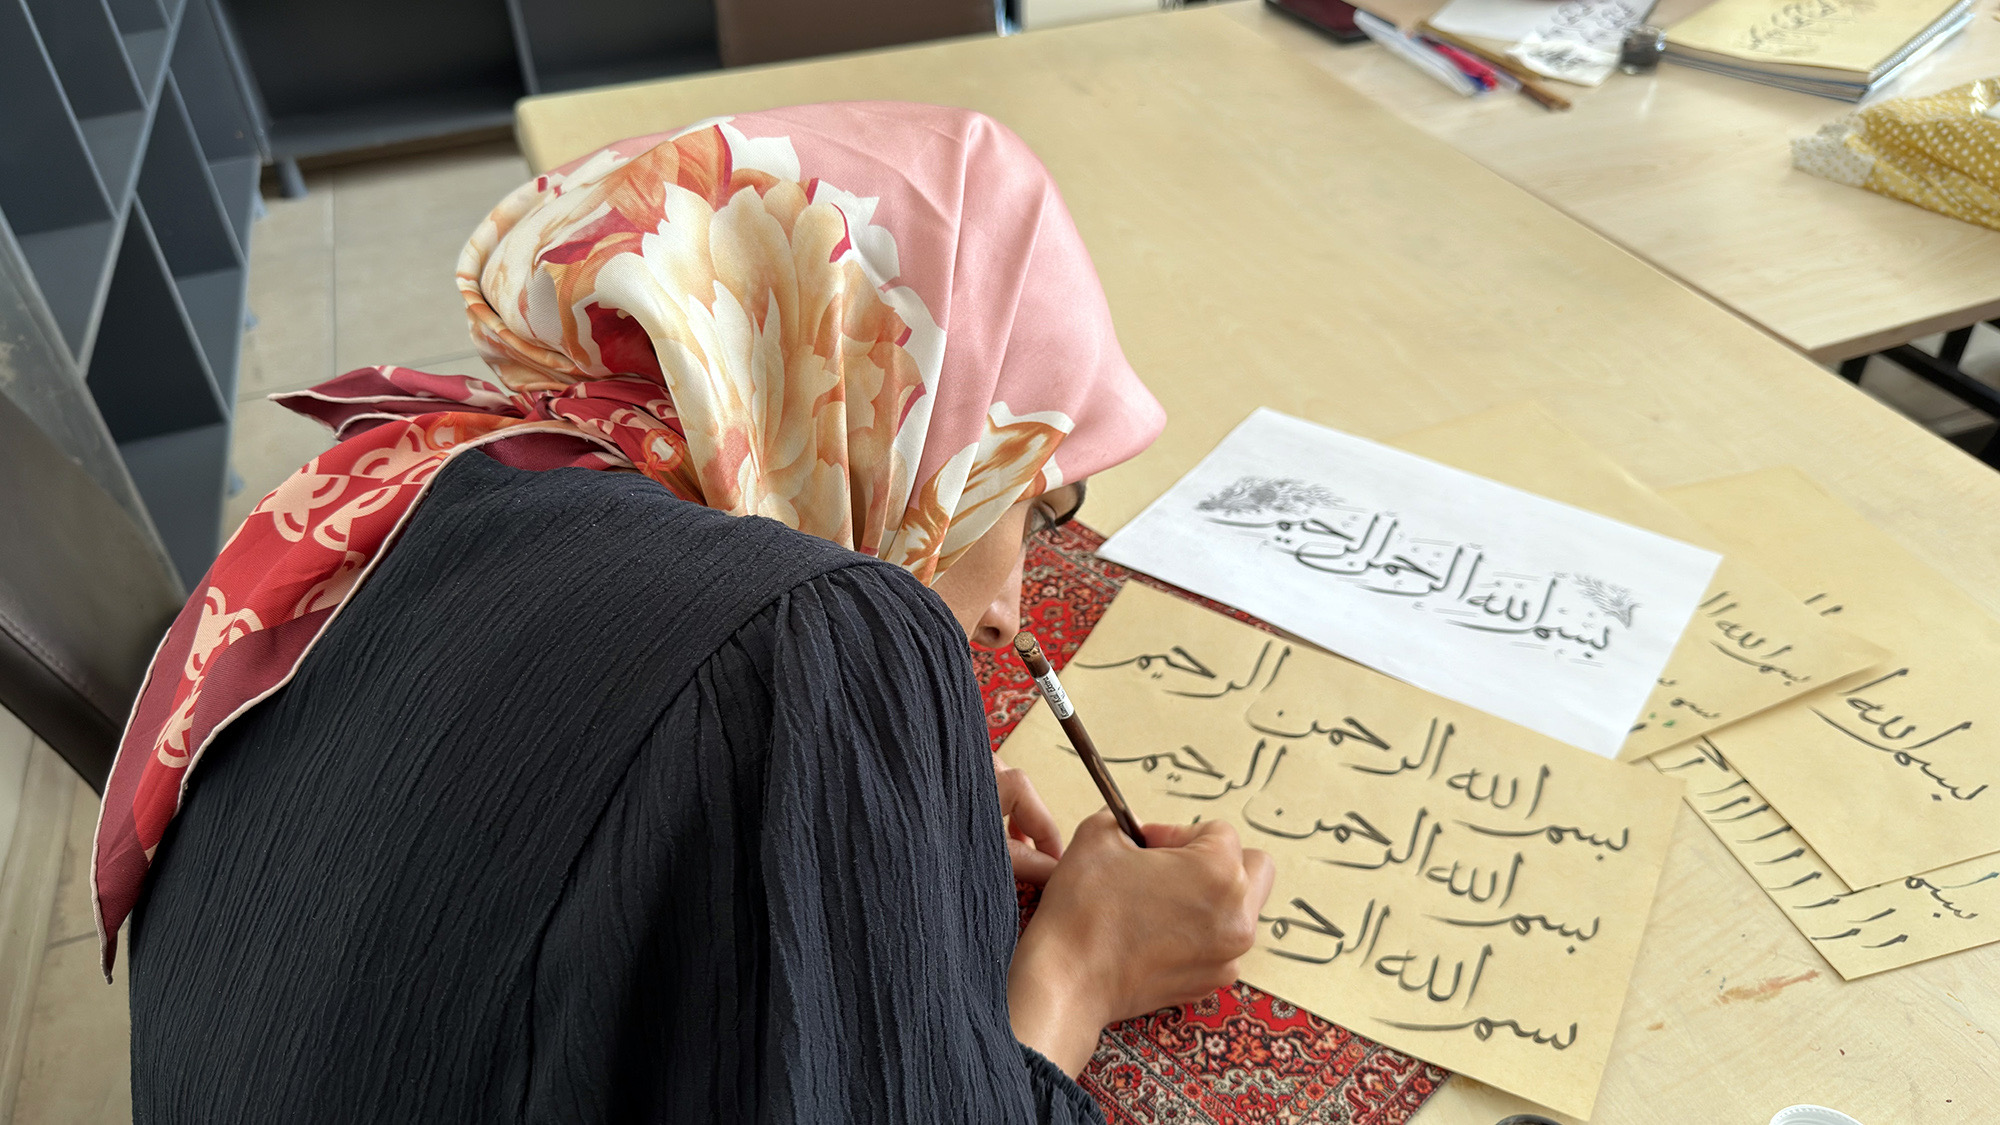 بسم الله الرحمن الرحيم
بسم الله الرحمن الرحيم
بسم الله الرحمن الرحيم
بسم الله الرحمـ
بسم الله
بسم
بسم الله
بسم